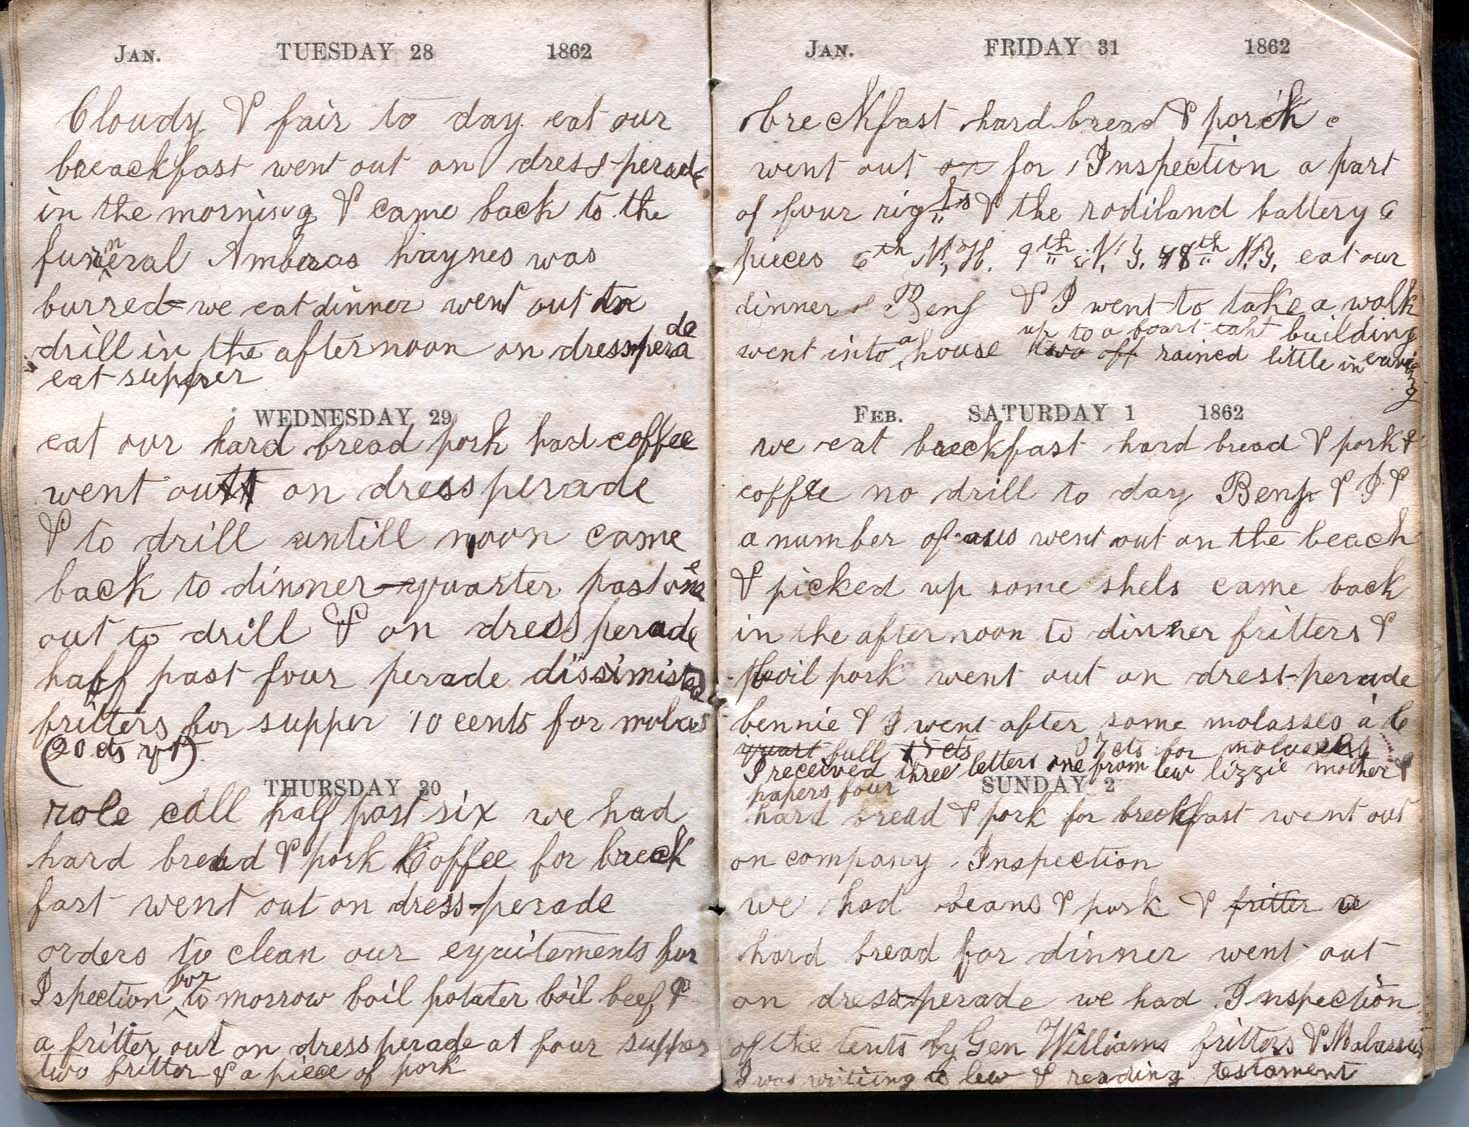 JAN. TUESDAY 28 1862
Cloudy & fair to day eat our
breackfast went out on dress-perade
in the morning & came back to the
funeral Ambras haynes was
burred we eat dinner went out to
drill in the afternoon on dressperade
eat supper
WEDNESDAY 29
eat our hard bread pork had coffee
went out on dressperade
& to drill untill noon came
back to dinner-quarter past one
out to drill & on dress perade
half past four perade dissimisted
fritters for supper 10 cents for molas
(20 cts
THURSDAY 30
role call half past six we had
hard bread & pork Coffee for breack
fast went out on dress-perade
orders to clean our eyuitements for
Ispection for to morrow boil potater boil beef &
a fritter out on dressperade at four supper
two fritter & a piece of pork
JAN. FRIDAY 31 1862
breckfast hard bread & porck
went out for Inspection a part
of four rigts & the rodiland battery 6
pieces 6th N,H. 9th N.J. 48th N.Y. eat our
dinner Benj & I went to take a walk
up to a boart building
went into a house two off rained little in eaving
FEB. SATURDAY 1 1862
we eat breckfast hard bread & pork &
coffee no drill to day Benj & I &
a number of us went out on the beach
& picked up some shels came back
in the afternoon to dinner fritters &
boil pork went out on drest-perade
bennie & I went after some molasses a
quart full 15 cts 37 cts for molasses
I received three letters one from lew lizzie mother &
papers four
SUNDAY 2
hard bread & pork for breckfast went out
on company Inspection
we had beans & pork & fritter
hard bread for dinner went out
on dress-perade we had Inspection
of the tents by Gen Williams fritters & Malasses
I was writing to lew & reading testament